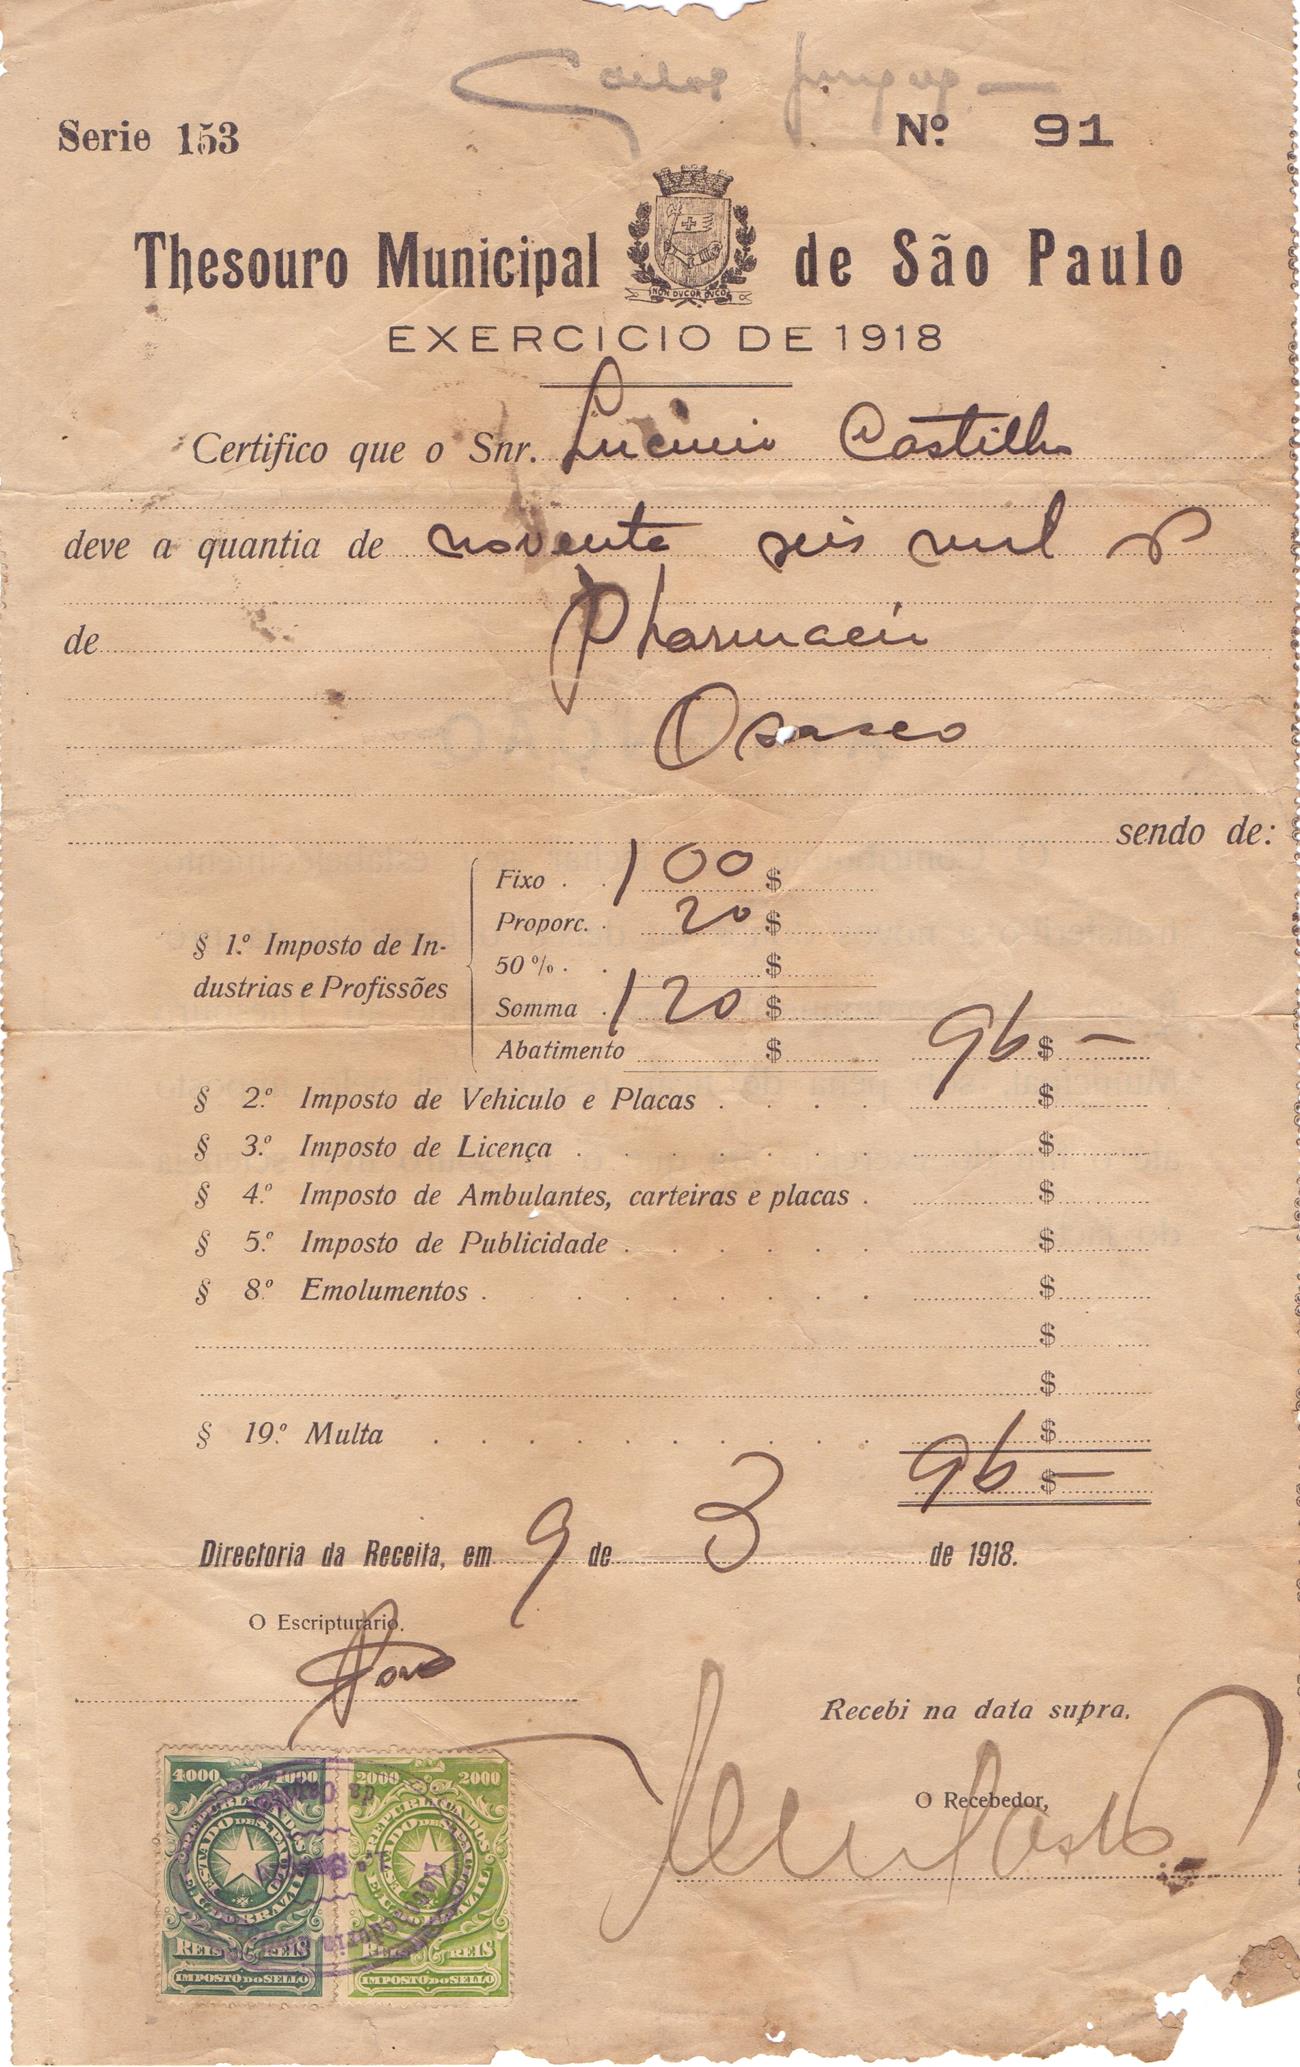 Serie 153
Nº 91
Thesouro Municipal de São Paulo
NON DVCOR DVCO
EXERCICIO DE 1918
Certifico que o Snr. Lucinio Castilho
deve a quantia de noventa seis mil
de Pharmacia
Osasco
sendo de:
§ 1.º Imposto de In-
dustrias e Profissões
Fixo . . 100 $
Proporc. . 20 $
50 % . . $
Somma . 120 $
Abatimento $ 96 $ —
§ 2.º Imposto de Vehiculo e Placas . . . . $
§ 3.º Imposto de Licença . . . . . . . $
§ 4.º Imposto de Ambulantes, carteiras e placas . $
§ 5.º Imposto de Publicidade . . . . . . $
§ 8.º Emolumentos . . . . . . . . $
$
$
§ 19.º Multa . . . . . . . . . . $
96 $ —
Directoria da Receita, em 9 de 3 de 1918.
O Escripturario.
Recebi na data supra.
O Recebedor,
4000 4000 2000 2000
REPUBLICA DOS ESTADOS UNIDOS DO BRAZIL
ESTADO DE S. PAULO
REPUBLICA DOS ESTADOS UNIDOS DO BRAZIL
ESTADO DE S. PAULO
REIS REIS REIS REIS
IMPOSTO DO SELLO IMPOSTO DO SELLO